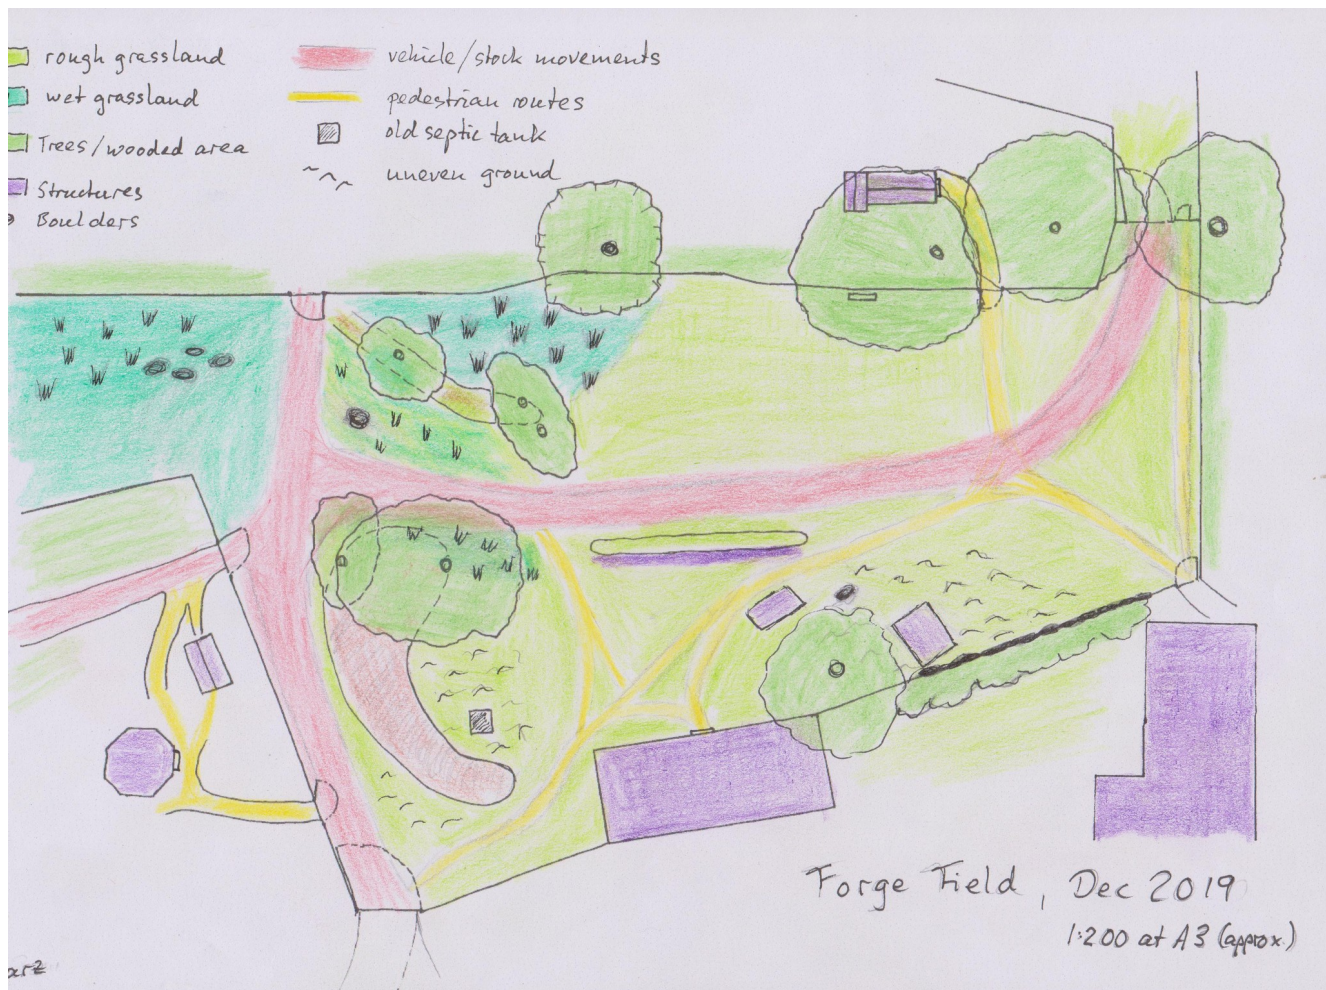 rough grassland
wet grassland
Trees/wooded area
Structures
Boulders
vehicle/stock movements
pedestrian routes
old septic tank
uneven ground
Forge Field, Dec 2019
1:200 at A3 (approx.)